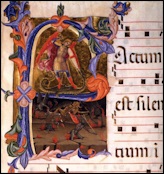 Factum
est silen
cium i